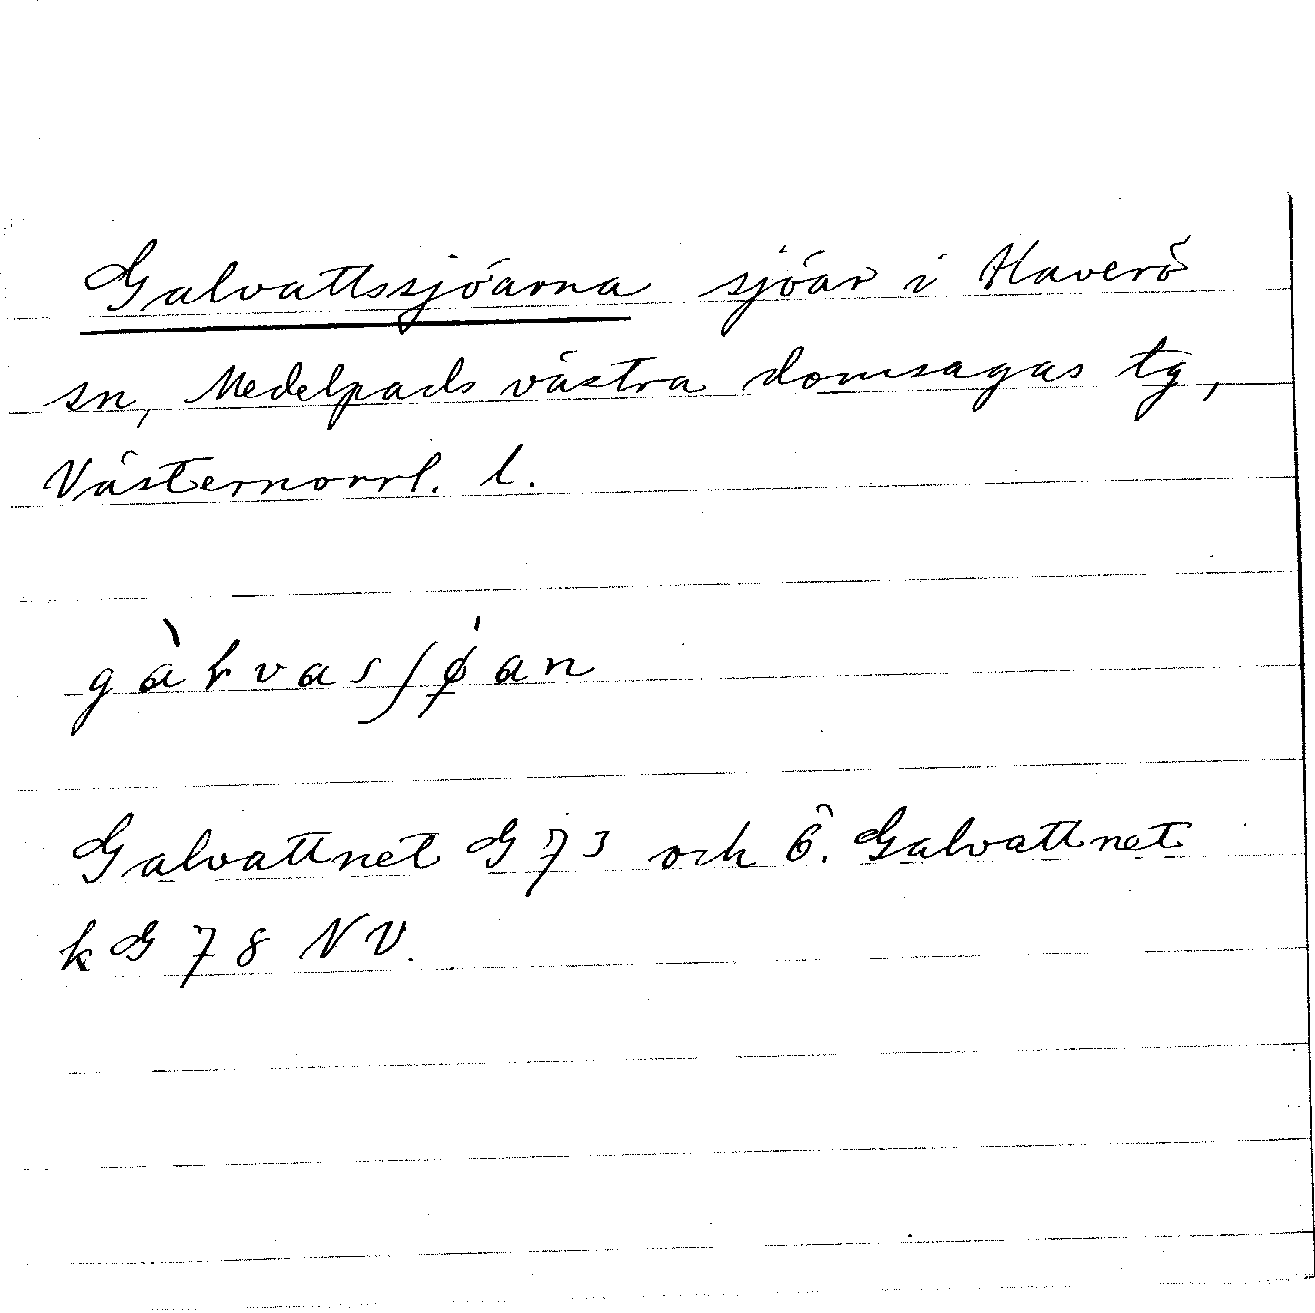 Galvattssjöarna sjöar i Haverö
sn, Medelpads västra domsagas tg,
Västernorrl. l.
Galvattnet G 73 och Ö. Galvattnet
k G 78 NV.